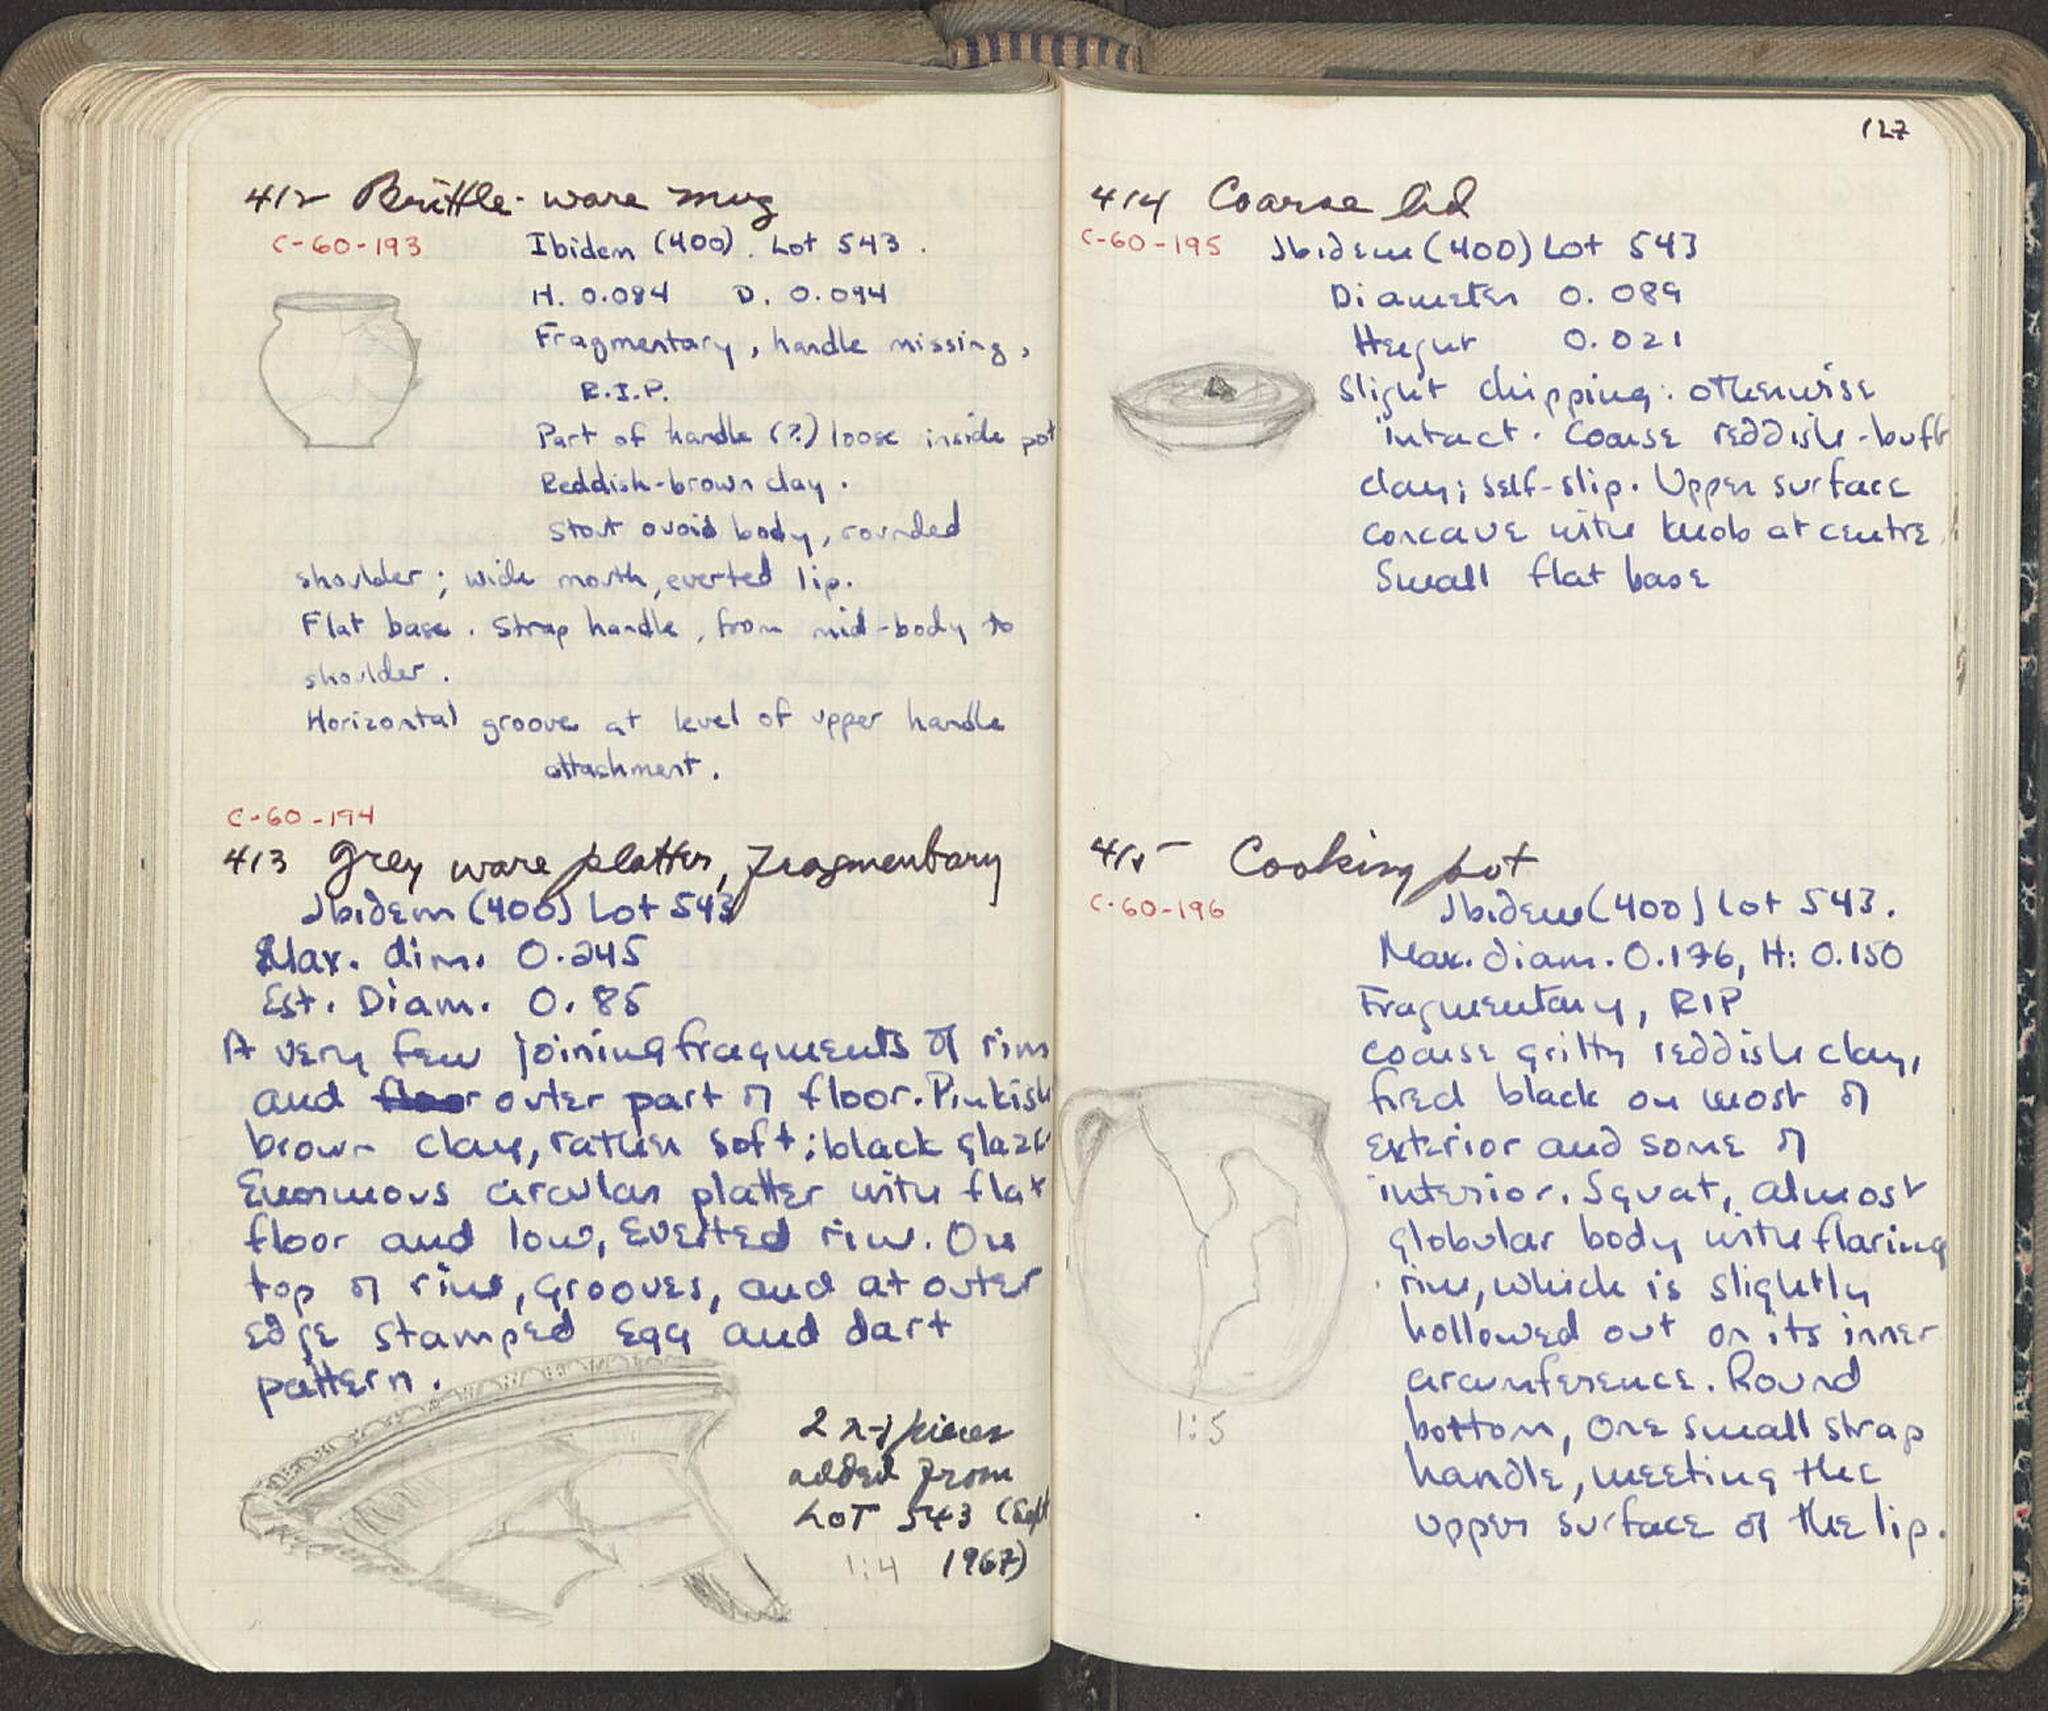 412 Brittle-ware mug
C-60-193 Ibidem (400). Lot 543.
H. 0.084 D. 0.094
Fragmentary, handle missing,
R.I.P.
Part of handle (?) loose inside pot
Reddish-brown clay.
Stout ovoid body, rounded
shoulder; wide mouth, everted lip.
Flat base. Strap handle, from mid-body to
shoulder.
Horizontal groove at level of upper handle
attachment.
C-60-194
413 Grey ware platter, fragmentary
Ibidem (400) Lot 543
Max. dim. 0.245
Est. Diam. 0.85
A very few joining fragments of rim
and floor outer part of floor. Pinkish
brown clay, rather soft; black glaze
Enormous circular platter with flat
floor and low, everted rim. On
top of rim, grooves, and at outer
edge stamped egg and dart
pattern.
2 n-j pieces
added from
Lot 543 (Sept
1:4 1967)
127
414 Coarse lid
C-60-195 Ibidem (400) Lot 543
Diameter 0.089
Height 0.021
Slight chipping: otherwise
intact. Coarse reddish-buff
clay; self-slip. Upper surface
concave with knob at centre
Small flat base
415 Cooking pot
C-60-196 Ibidem (400) Lot 543.
Max. diam. 0.176, H: 0.150
Fragmentary, RIP
Coarse gritty reddish clay,
fired black on most of
exterior and some of
interior. Squat, almost
globular body with flaring
rim, which is slightly
hollowed out on its inner
circumference. Round
1:5 bottom, One small strap
handle, meeting the
upper surface of the lip.